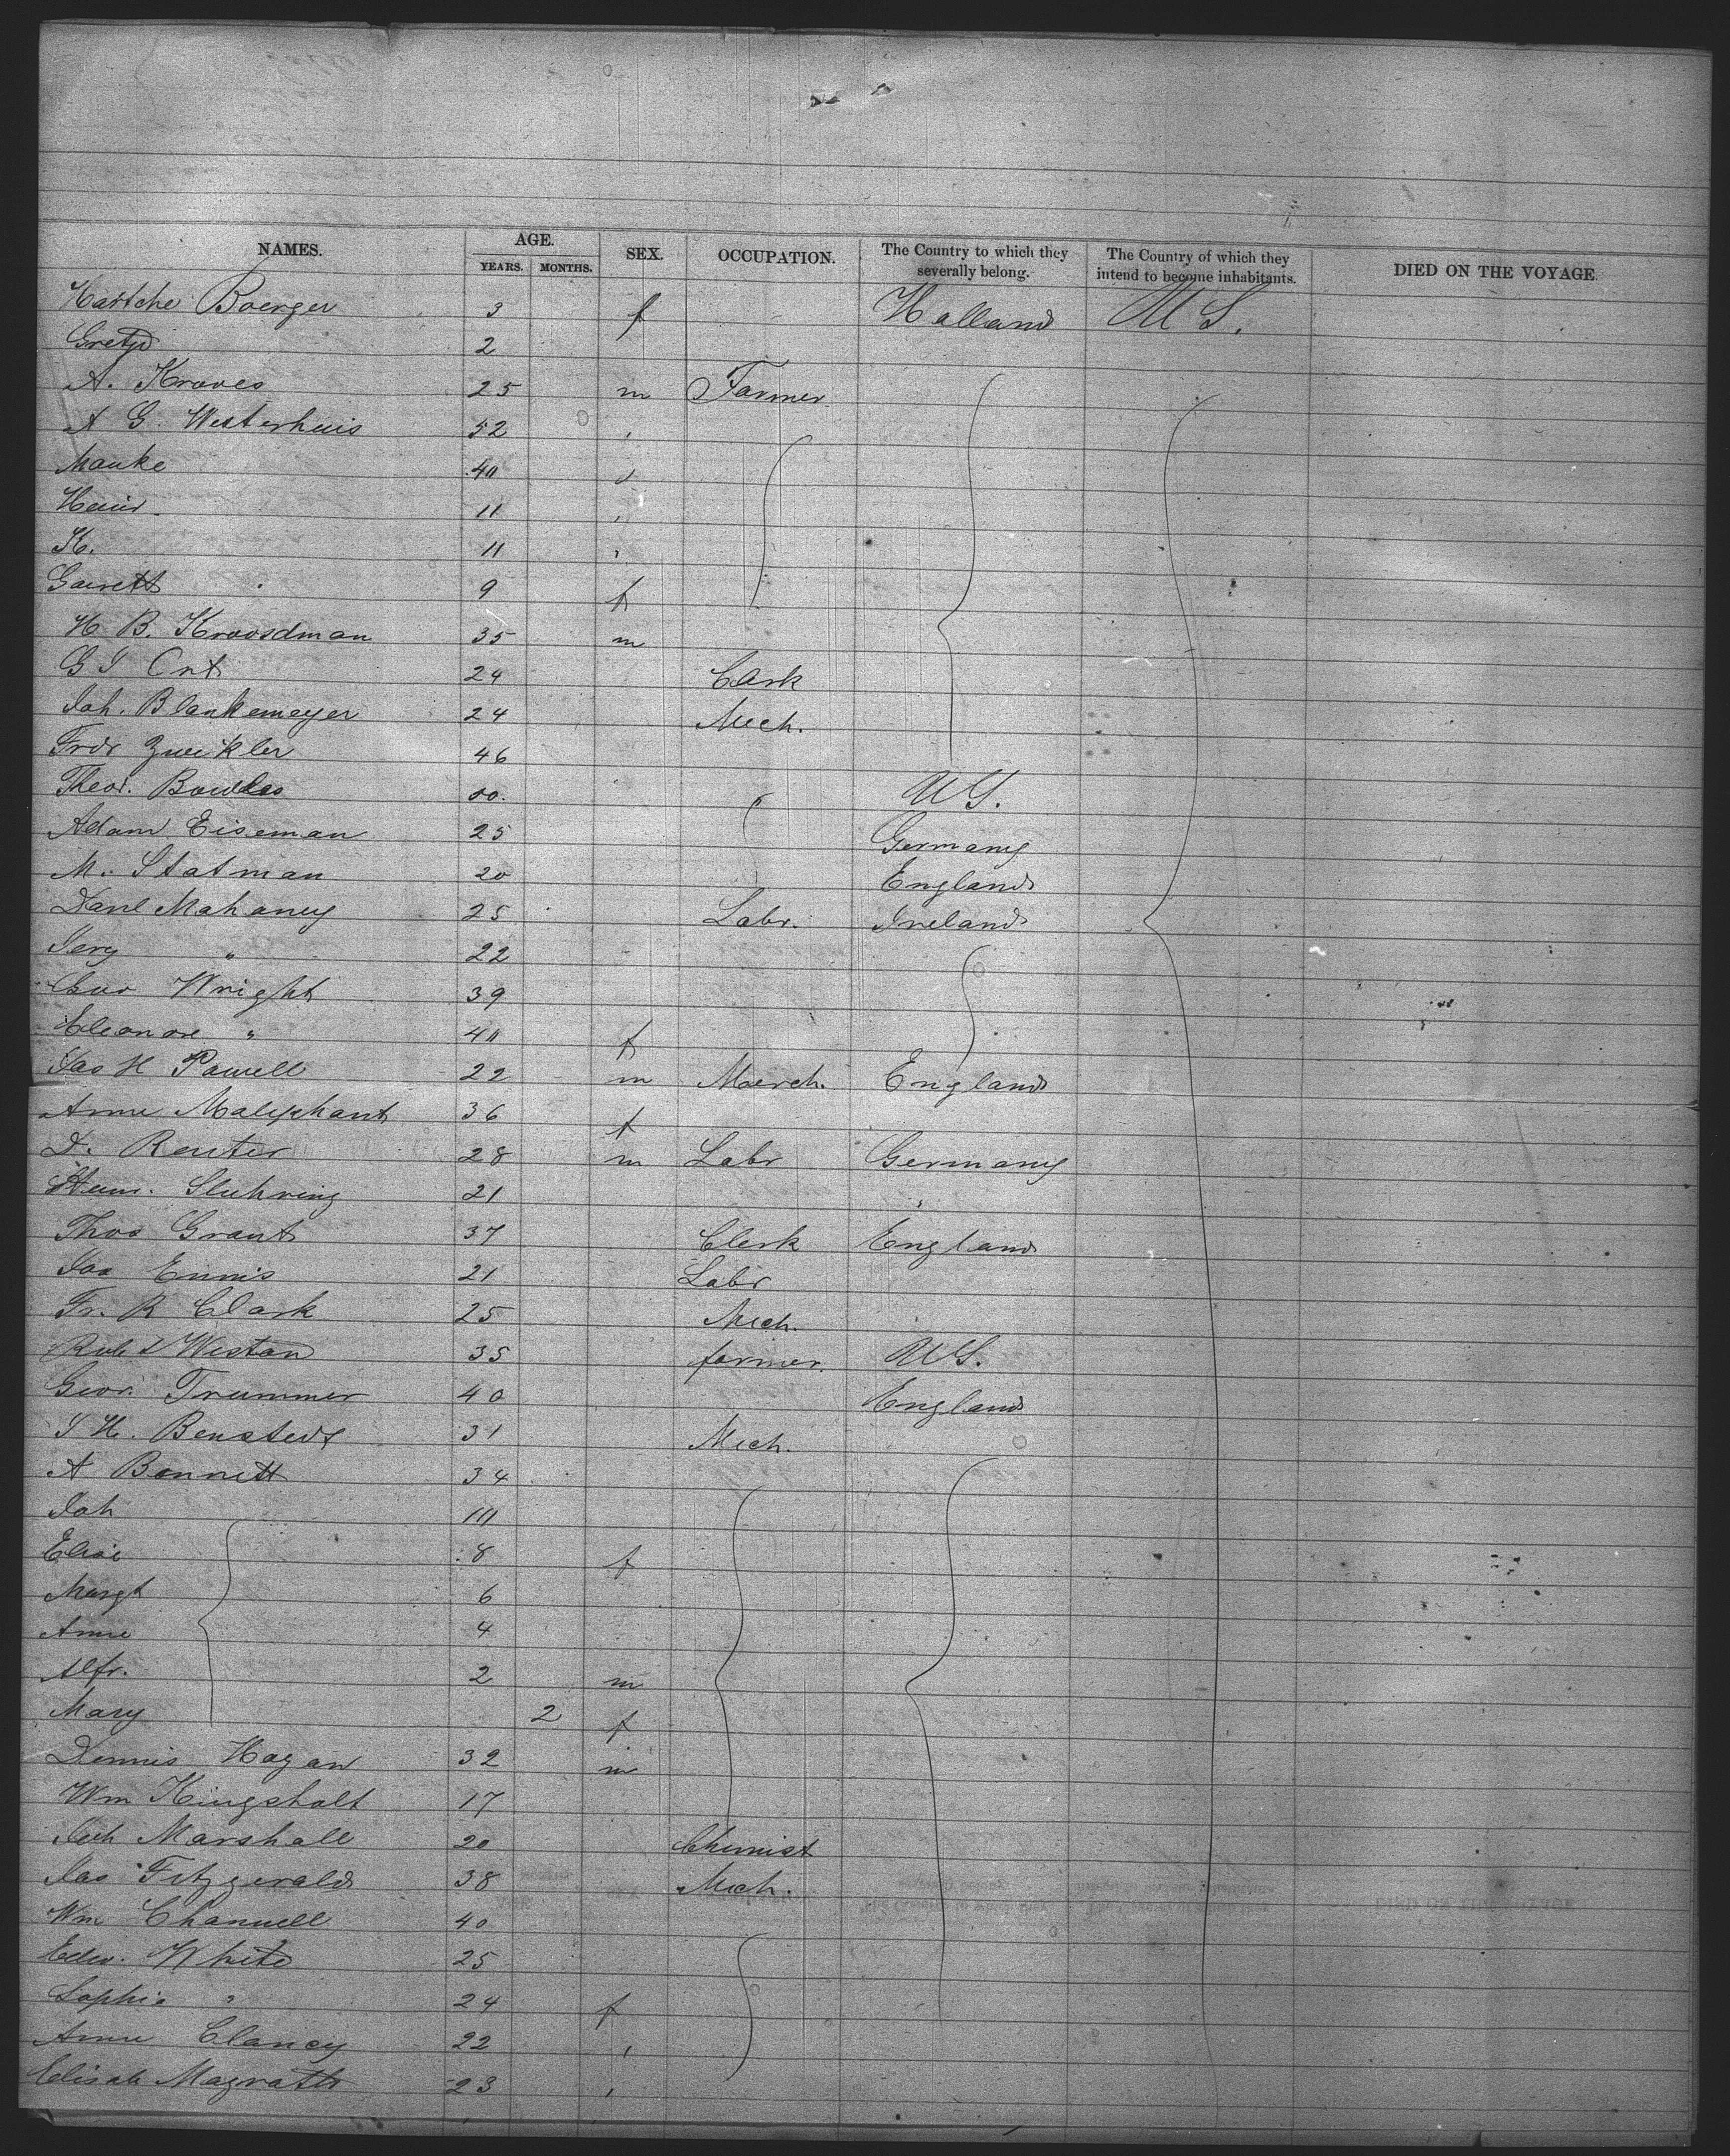 NAMES. AGE. YEARS. MONTHS. SEX. OCCUPATION. The Country to which they severally belong. The Country of which they intend to become inhabitants. DIED ON THE VOYAGE
Hartche Boerger 3 f Holland U S.
Gretjd 2
A. Kroves 25 m Farmer
A G. Westerhuis 52
Mauke 40
Heinr. 11
K. 11
Garrett 9 f
H B. Kroosdman 35 m
G J Ort 24 Clerk
Joh. Blankemeyer 24 Mech.
Frdr Zwikler 46
Theod. Bowles U S.
Adam Eiseman 25 Germany
M. Statman 20 England
Danl Mahaney 25 Labr. Ireland
Jery " 22
Wright 39
Eleonore " 40 f
Jas H Powell 22 m Merch. England
Anne Malephant 36 f
D. Reuter 28 m Labr Germany
Heinr. Sluhring 21
Thos Grant 37 Clerk England
Jas Ennis 21 Labr
Fr. R Clark 25 Mech.
Robt Weston 35 farmer. U S.
Geor. Trummer 40 England
J H. Benstedt 31 Mech.
A Bennett 34
Joh 10
Elise 8 f
Margt 6
Anne 4
Alfr. 2 m
Mary 2 f
Dennis Hagan 32 m
Wm Kingsholt 17
Marshall 20 Chemist
Jas Fitzgerald 38 Mech.
Wm Chanuell 40
Edw. White 25
Sophie " 24 f
Anne Clancy 22
Elisab Magrath 23